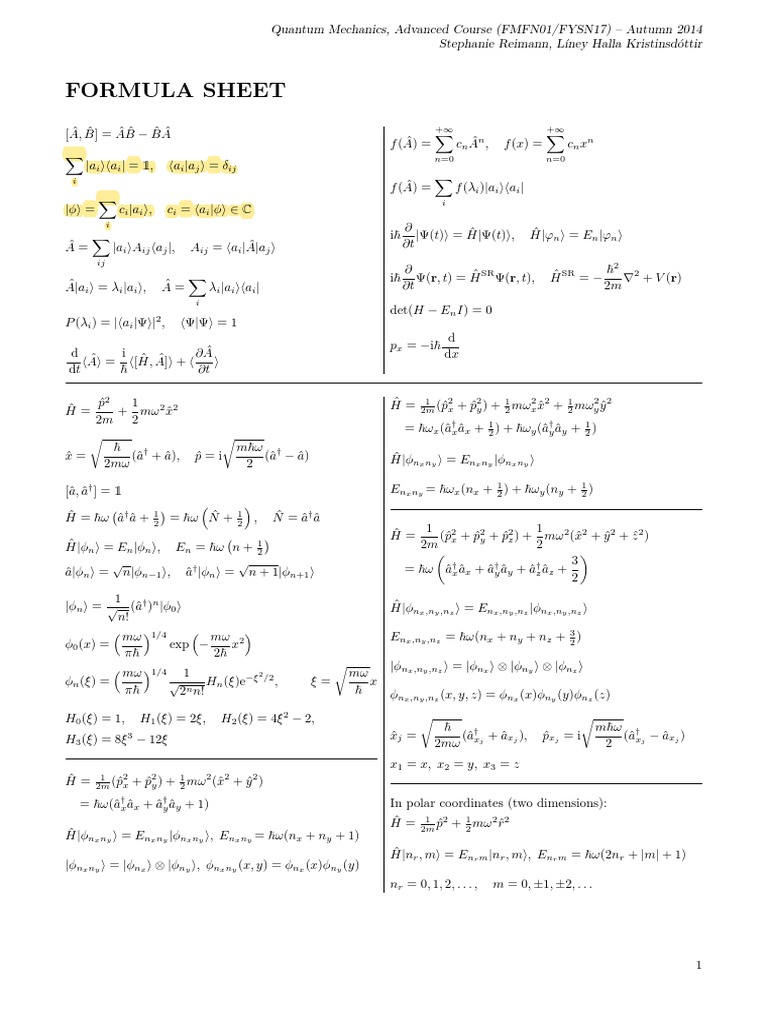 Quantum Mechanics, Advanced Course (FMFN01/FYSN17) – Autumn 2014
Stephanie Reimann, Líney Halla Kristinsdóttir
FORMULA SHEET
[Â, B̂] = ÂB̂ − B̂Â
∑_i |a_i⟩⟨a_i| = 𝟙, ⟨a_i|a_j⟩ = δ_ij
|ϕ⟩ = ∑_i c_i|a_i⟩, c_i = ⟨a_i|ϕ⟩ ∈ ℂ
Â = ∑_ij |a_i⟩A_ij⟨a_j|, A_ij = ⟨a_i|Â|a_j⟩
Â|a_i⟩ = λ_i|a_i⟩, Â = ∑_i λ_i|a_i⟩⟨a_i|
P(λ_i) = |⟨a_i|Ψ⟩|², ⟨Ψ|Ψ⟩ = 1
d/dt ⟨Â⟩ = i/ħ ⟨[Ĥ, Â]⟩ + ⟨∂Â/∂t⟩
f(Â) = ∑_{n=0}^{+∞} c_n Â^n, f(x) = ∑_{n=0}^{+∞} c_n x^n
f(Â) = ∑_i f(λ_i)|a_i⟩⟨a_i|
iħ ∂/∂t |Ψ(t)⟩ = Ĥ|Ψ(t)⟩, Ĥ|φ_n⟩ = E_n|φ_n⟩
iħ ∂/∂t Ψ(r, t) = Ĥ^SR Ψ(r, t), Ĥ^SR = −ħ²/2m ∇² + V(r)
det(H − E_n I) = 0
p_x = −iħ d/dx
Ĥ = p̂²/2m + 1/2 mω²x̂²
x̂ = √(ħ/2mω) (â† + â), p̂ = i√(mħω/2) (â† − â)
[â, â†] = 𝟙
Ĥ = ħω (â†â + 1/2) = ħω (N̂ + 1/2), N̂ = â†â
Ĥ|ϕ_n⟩ = E_n|ϕ_n⟩, E_n = ħω (n + 1/2)
â|ϕ_n⟩ = √n|ϕ_{n−1}⟩, â†|ϕ_n⟩ = √(n + 1)|ϕ_{n+1}⟩
|ϕ_n⟩ = 1/√n! (â†)^n|ϕ_0⟩
ϕ_0(x) = (mω/πħ)^{1/4} exp(−mω/2ħ x²)
ϕ_n(ξ) = (mω/πħ)^{1/4} 1/√(2^n n!) H_n(ξ)e^{−ξ²/2}, ξ = √(mω/ħ) x
H_0(ξ) = 1, H_1(ξ) = 2ξ, H_2(ξ) = 4ξ² − 2,
H_3(ξ) = 8ξ³ − 12ξ
Ĥ = 1/2m (p̂_x² + p̂_y²) + 1/2 mω²(x̂² + ŷ²)
= ħω(â_x†â_x + â_y†â_y + 1)
Ĥ|ϕ_{n_x n_y}⟩ = E_{n_x n_y}|ϕ_{n_x n_y}⟩, E_{n_x n_y} = ħω(n_x + n_y + 1)
|ϕ_{n_x n_y}⟩ = |ϕ_{n_x}⟩ ⊗ |ϕ_{n_y}⟩, ϕ_{n_x n_y}(x, y) = ϕ_{n_x}(x)ϕ_{n_y}(y)
Ĥ = 1/2m (p̂_x² + p̂_y²) + 1/2 mω_x²x̂² + 1/2 mω_y²ŷ²
= ħω_x(â_x†â_x + 1/2) + ħω_y(â_y†â_y + 1/2)
Ĥ|ϕ_{n_x n_y}⟩ = E_{n_x n_y}|ϕ_{n_x n_y}⟩
E_{n_x n_y} = ħω_x(n_x + 1/2) + ħω_y(n_y + 1/2)
Ĥ = 1/2m (p̂_x² + p̂_y² + p̂_z²) + 1/2 mω²(x̂² + ŷ² + ẑ²)
= ħω (â_x†â_x + â_y†â_y + â_z†â_z + 3/2)
Ĥ|ϕ_{n_x,n_y,n_z}⟩ = E_{n_x,n_y,n_z}|ϕ_{n_x,n_y,n_z}⟩
E_{n_x,n_y,n_z} = ħω(n_x + n_y + n_z + 3/2)
|ϕ_{n_x,n_y,n_z}⟩ = |ϕ_{n_x}⟩ ⊗ |ϕ_{n_y}⟩ ⊗ |ϕ_{n_z}⟩
ϕ_{n_x,n_y,n_z}(x, y, z) = ϕ_{n_x}(x)ϕ_{n_y}(y)ϕ_{n_z}(z)
x̂_j = √(ħ/2mω) (â†_{x_j} + â_{x_j}), p̂_{x_j} = i√(mħω/2) (â†_{x_j} − â_{x_j})
x_1 = x, x_2 = y, x_3 = z
In polar coordinates (two dimensions):
Ĥ = 1/2m p̂² + 1/2 mω²r̂²
Ĥ|n_r, m⟩ = E_{n_r m}|n_r, m⟩, E_{n_r m} = ħω(2n_r + |m| + 1)
n_r = 0, 1, 2, . . . , m = 0, ±1, ±2, . . .
1